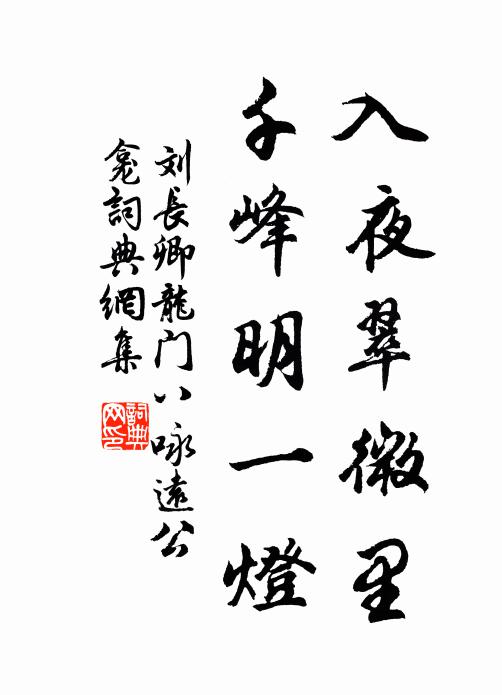 入夜翠微里
千峰明一燈
刘長卿龍门八咏遠公
龛詞典網集
詞典
网印